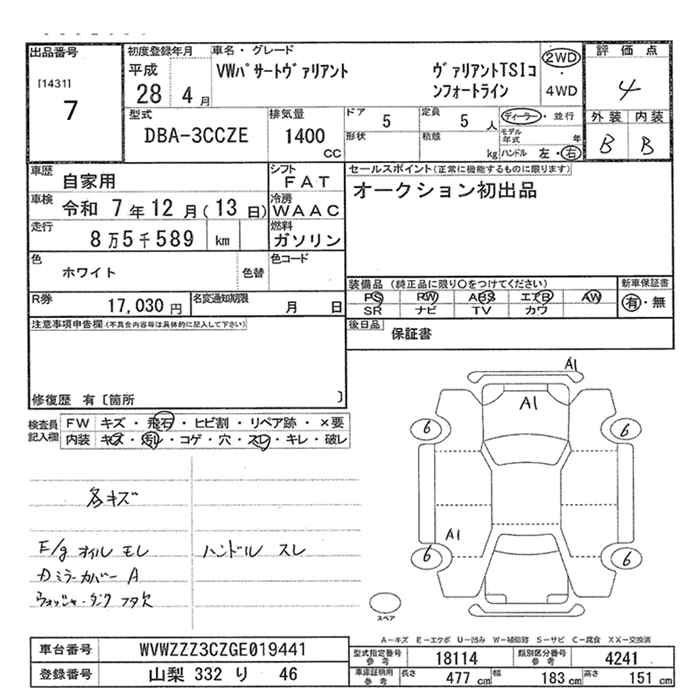 出品番号
[1431]
7
初度登録年月
平成
28 4 月
車名・グレード
VWパサートヴァリアント
ヴァリアントTSIコ
ンフォートライン
2WD
・
4WD
評価点
4
外装 内装
B B
型式
DBA-3CCZE
排気量
1400
CC
ドア 5
定員 5 人
形状
積載 kg
ディーラー・並行
モデル年式 年
ハンドル 左・右
車歴 自家用
シフト FAT
車検 令和 7 年 12 月 (13 日)
冷房 WAAC
走行 8 万 5 千 589 km
燃料 ガソリン
色 ホワイト
色替
色コード
セールスポイント(正常に機能するものに限ります)
オークション初出品
装備品 (純正品に限り○をつけてください)
PS PW ABS エアB AW
SR ナビ TV カワ
新車保証書
有・無
後日品 保証書
R券 17,030 円
名変通知期限 月 日
注意事項申告欄(不具合内容等は具体的に記入して下さい)
修復歴 有〔箇所 〕
検査員記入欄
FW キズ・飛石・ヒビ割・リペア跡・×要
内装 キズ・汚レ・コゲ・穴・スレ・キレ・破レ
各キズ
E/g オイル モレ
ハンドル スレ
カミラーカバー A
ウォッシャータンク フタ欠
A1
A1
6 6
A1
6 6
スペア
A-キズ E-エクボ U-凹み W-補修跡 S-サビ C-腐食 XX-交換済
車台番号 WVWZZZ3CZGE019441
登録番号 山梨 332 り 46
型式指定番号 参考 18114
類別区分番号 参考 4241
車庫証明用 参考 長さ 477 cm 幅 183 cm 高さ 151 cm